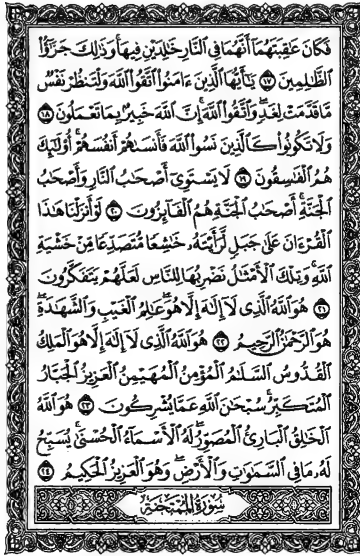 فَكَانَ عَٰقِبَتَهُمَآ أَنَّهُمَا فِي ٱلنَّارِ خَٰلِدَيۡنِ فِيهَاۚ وَذَٰلِكَ جَزَٰٓؤُاْ
ٱلظَّٰلِمِينَ ١٧ يَٰٓأَيُّهَا ٱلَّذِينَ ءَامَنُواْ ٱتَّقُواْ ٱللَّهَ وَلۡتَنظُرۡ نَفۡسٞ
مَّا قَدَّمَتۡ لِغَدٖۖ وَٱتَّقُواْ ٱللَّهَۚ إِنَّ ٱللَّهَ خَبِيرُۢ بِمَا تَعۡمَلُونَ ١٨
وَلَا تَكُونُواْ كَٱلَّذِينَ نَسُواْ ٱللَّهَ فَأَنسَىٰهُمۡ أَنفُسَهُمۡۚ أُوْلَٰٓئِكَ
هُمُ ٱلۡفَٰسِقُونَ ١٩ لَا يَسۡتَوِيٓ أَصۡحَٰبُ ٱلنَّارِ وَأَصۡحَٰبُ
ٱلۡجَنَّةِۚ أَصۡحَٰبُ ٱلۡجَنَّةِ هُمُ ٱلۡفَآئِزُونَ ٢٠ لَوۡ أَنزَلۡنَا هَٰذَا
ٱلۡقُرۡءَانَ عَلَىٰ جَبَلٖ لَّرَأَيۡتَهُۥ خَٰشِعٗا مُّتَصَدِّعٗا مِّنۡ خَشۡيَةِ
ٱللَّهِۚ وَتِلۡكَ ٱلۡأَمۡثَٰلُ نَضۡرِبُهَا لِلنَّاسِ لَعَلَّهُمۡ يَتَفَكَّرُونَ
٢١ هُوَ ٱللَّهُ ٱلَّذِي لَآ إِلَٰهَ إِلَّا هُوَۖ عَٰلِمُ ٱلۡغَيۡبِ وَٱلشَّهَٰدَةِۖ
هُوَ ٱلرَّحۡمَٰنُ ٱلرَّحِيمُ ٢٢ هُوَ ٱللَّهُ ٱلَّذِي لَآ إِلَٰهَ إِلَّا هُوَ ٱلۡمَلِكُ
ٱلۡقُدُّوسُ ٱلسَّلَٰمُ ٱلۡمُؤۡمِنُ ٱلۡمُهَيۡمِنُ ٱلۡعَزِيزُ ٱلۡجَبَّارُ
ٱلۡمُتَكَبِّرُۚ سُبۡحَٰنَ ٱللَّهِ عَمَّا يُشۡرِكُونَ ٢٣ هُوَ ٱللَّهُ
ٱلۡخَٰلِقُ ٱلۡبَارِئُ ٱلۡمُصَوِّرُۖ لَهُ ٱلۡأَسۡمَآءُ ٱلۡحُسۡنَىٰۚ يُسَبِّحُ
لَهُۥ مَا فِي ٱلسَّمَٰوَٰتِ وَٱلۡأَرۡضِۖ وَهُوَ ٱلۡعَزِيزُ ٱلۡحَكِيمُ ٢٤
سُورَةُ ٱلۡمُمۡتَحَنَةِ